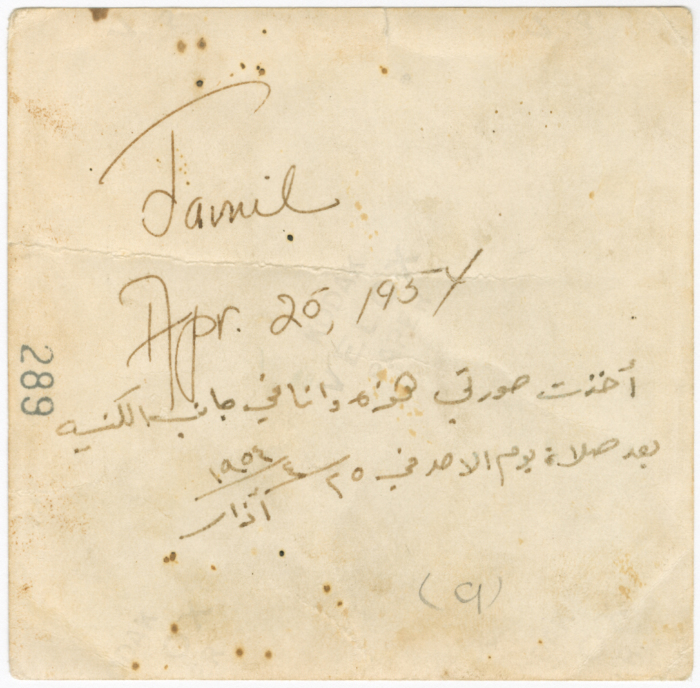 Jamil
Apr. 25, 1954
أخذت صورتي هذه وانا في جانب الكنيسه
بعد صلاة يوم الاحد في ٢٥/٤/١٩٥٤
أذار
289
(9)